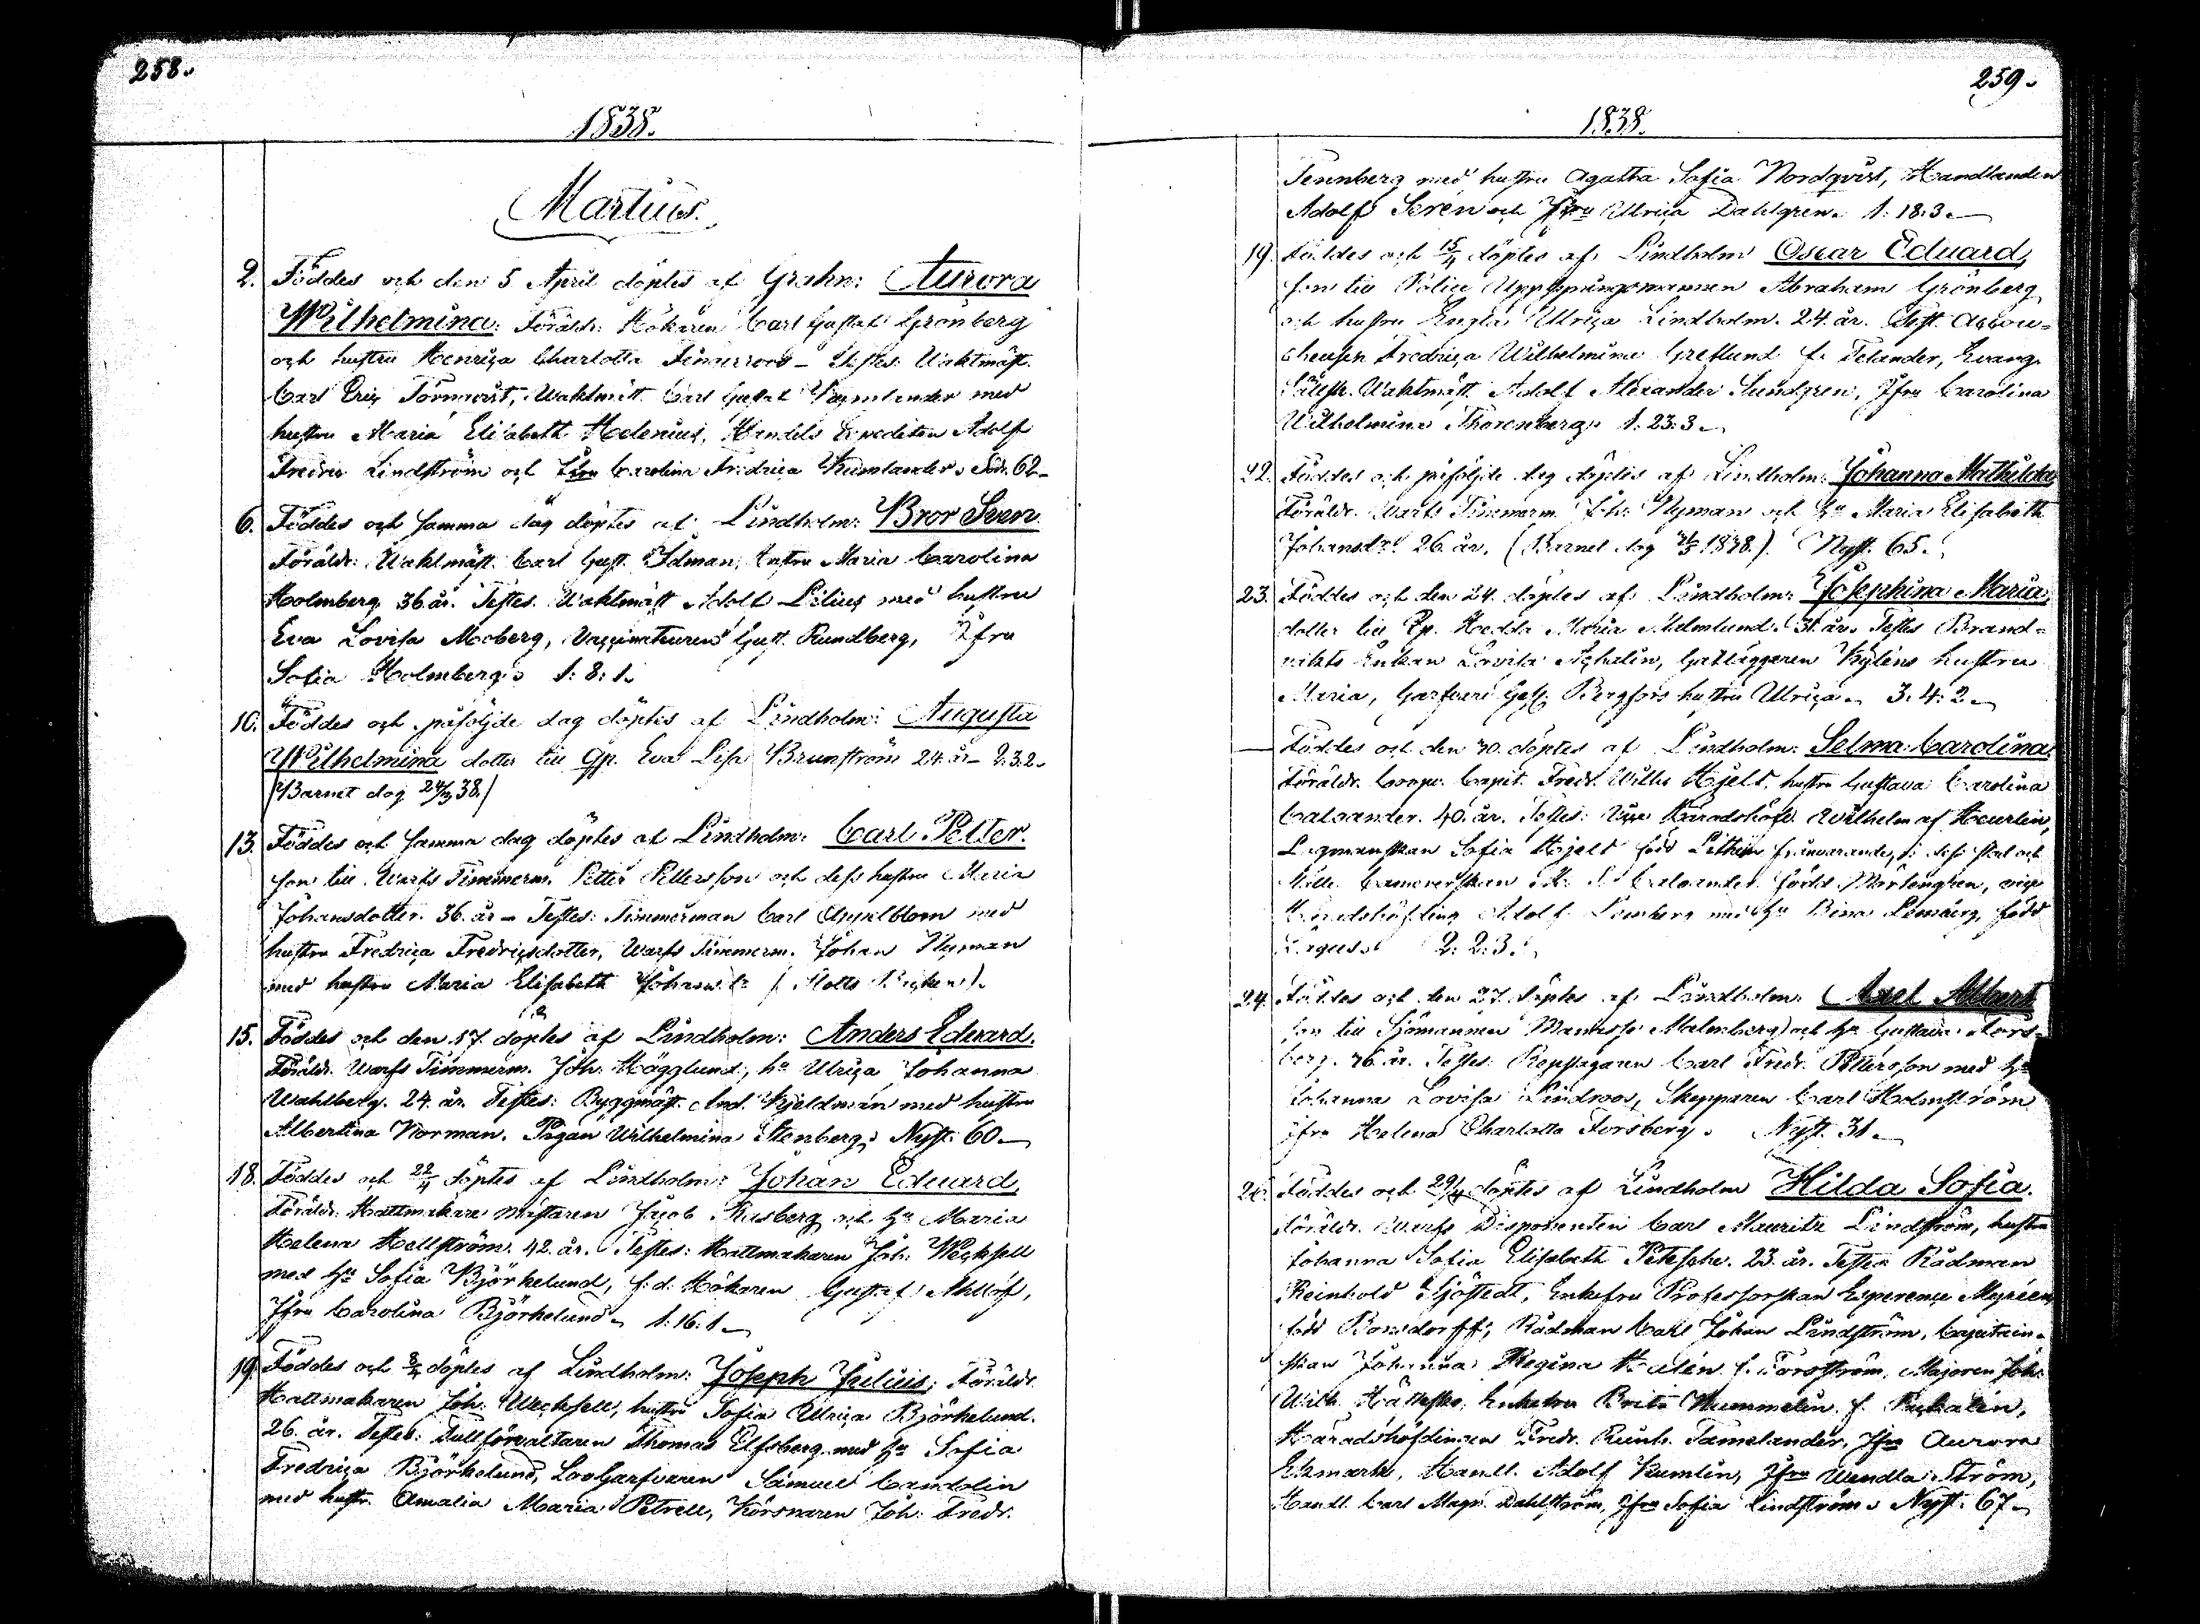 258.
1838.
Martius.
2. Föddes och den 5 April döptes af Grahn: Aurora
Wilhelmina: Föräldr: Hökaren Carl Gustaf Grönberg
och hustru Henrica Charlotta Finnerroos – Testes: Waktmäst.
Carl Eric Törnqvist, Waktmäst. Carl Gustaf Kumlander med
hustru Maria Elisabeth Helenius, Handels Expediten Adolf
Fredric Lindström och Jfru Carolina Fredrica Kumlander. Söd. 62 –
6. Föddes och samma dag döptes af Lindholm: Bror Sven.
Föräldr: Waktmäst. Carl Gust. Idman, hustru Maria Carolina
Holmberg 36 år. Testes. Waktmäst Adolf Lilius med hustru
Eva Lovisa Moberg, Vaccinateuren Gust. Rundberg, Jfru
Sofia Holmberg. 1: 8: 1.
10. Föddes och påföljde dag döptes af Lindholm: Augusta
Wilhelmina dotter till Gp. Eva Lisa Brunström 24 år – 2.3.2.
(Barnet dog 24/3 38.)
13. Föddes och samma dag döptes af Lindholm: Carl Petter.
son till Warfs Timmerm. Petter Pettersson och dess hustru Maria
Johansdotter. 36. år – Testes: Timmerman Carl Appelblom med
hustru Fredrica Fredricsdotter, Warfs Timmerm. Johan Nyman
med hustru Maria Elisabeth Johansdr
15. Föddes och den 17. döptes af Lindholm: Anders Edvard.
Föräldr. Warfs Timmerm. Joh. Hägglund, hu Ulrica Johanna
Wahlberg. 24. år. Testes: Byggmäst. And. Kjeldman med hustru
Albertina Norman. Pigan Wilhelmina Stenberg. Nyst. 60 –
18. Föddes och 22/4 döptes af Lindholm: Johan Eduard,
Föräldr. Hattmakare mästaren Jacob Rusberg och hu Maria
Helena Hellström. 42. år. Testes: Hattmakaren Joh. Wecksell
med hu Sofia Björkelund, f. d. Hökaren Gustaf Ahllöf,
Jfru Carolina Björkelund. 1: 16: 1 –
19. Föddes och döptes af Lindholm: Joseph Julius; Föräldr.
Hattmakaren Joh. Weckssell, hustru Sofia Ulrica Björkelund.
26. år. Testes: Tullförvaltaren Thomas Elfsberg med hu Sofia
Fredrica Björkelund, Loogarfvaren Samuel Candolin
med hustr. Amalia Maria Petrell, Körsnaren Joh. Fredr.
259.
1838.
Tennberg med hustru Agatha Sofia Nordqvist, Handlanden
Adolf Seren och Jfru Ulrica Dahlgren. 1: 18: 3. –
19. Föddes och 15/4 döptes af Lindholm Oscar Eduard,
son till Police Uppsyningsmannen Abraham Grönberg
och hustru Engla Ulrica Lindholm. 24. år. Test. Accou-
cheusen Fredrica Wilhelmina Gretlund f. Telander, Evang.
Sällsk. Waktmäst. Adolf Alexander Sundgren, Jfru Carolina
Wilhelmina Thorenberg. 1: 23: 3 –
22. Föddes och påföljde dag döptes af Lindholm: Johanna Mathilda,
Föräldr. Warfs Timmerm. Joh. Nyman och hu Maria Elisabeth
Johansdr. 26 år. (Barnet dog 1838.) Nyst. 65.
23. Föddes och den 24. döptes af Lindholm: Josephina Maria,
dotter till Pp. Hedda Maria Malmlund. 31. år. Testes Brand-
vakts Enkan Lovisa Achalin, Gatläggaren Kyléns hustru
Maria, Garfveri Ges. Bergfors hustru Ulrica. 3. 4: 2 –
— Föddes och den 30. döptes af Lindholm: Selma Carolina.
Föräldr. Coopv. Capit. Fredr. Wilh. Hjelt, hustru Gustava Carolina
Caloander. 40. år. Testes: Vice Häradshöfd. Wilhelm af Heurlin,
Lagmanskan Sofia Hjelt född Lithén frånvarande,
Caloander född Mörtengren, vice
Häradshöfding Adolf Lemberg med hu Bina Lemberg, född
2: 2: 3.
24. Föddes och den 27. döptes af Lindholm: Axel Albert
son till Sjömannen Manasse Malmberg och hu Gustava Fors-
berg. 36. år. Testes: Repslagaren Carl Fredr. Pettersson med hu
Johanna Lovisa Lindroos, Skepparen Carl Holmström
Jfru Helena Charlotta Forsberg. Nyst. 31 –
26. Föddes och 29/4 döptes af Lindholm Hilda Sofia.
Föräldr. Warfs Disponenten Carl Mauritz Lindström, hustru
Johanna Sofia Elisabeth Petesche. 23. år. Testes Rådman
Reinhold Sjöstedt, Enkefru Professorskan Esperence Myréen,
född Bonsdorff, Rådman Carl Johan Lindström, Capitain-
skan Johanna Regina Walén f. Forsström, Majoren Joh.
Wilh. Enkefru Brita Wummelin f. Packalén,
Häradshöfdingen Fredr. Reinh. Tamelander, Jfru Aurora
Ekmark, Handl. Adolf Kumlin, Jfru Wendla Ström,
Handl. Carl Magn. Dahlström, Jfru Sofia Lindström. Nyst. 67 –